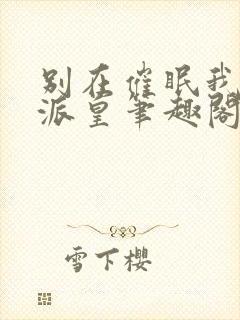 别在催眠我
派皇笔趣阁
雪下樱